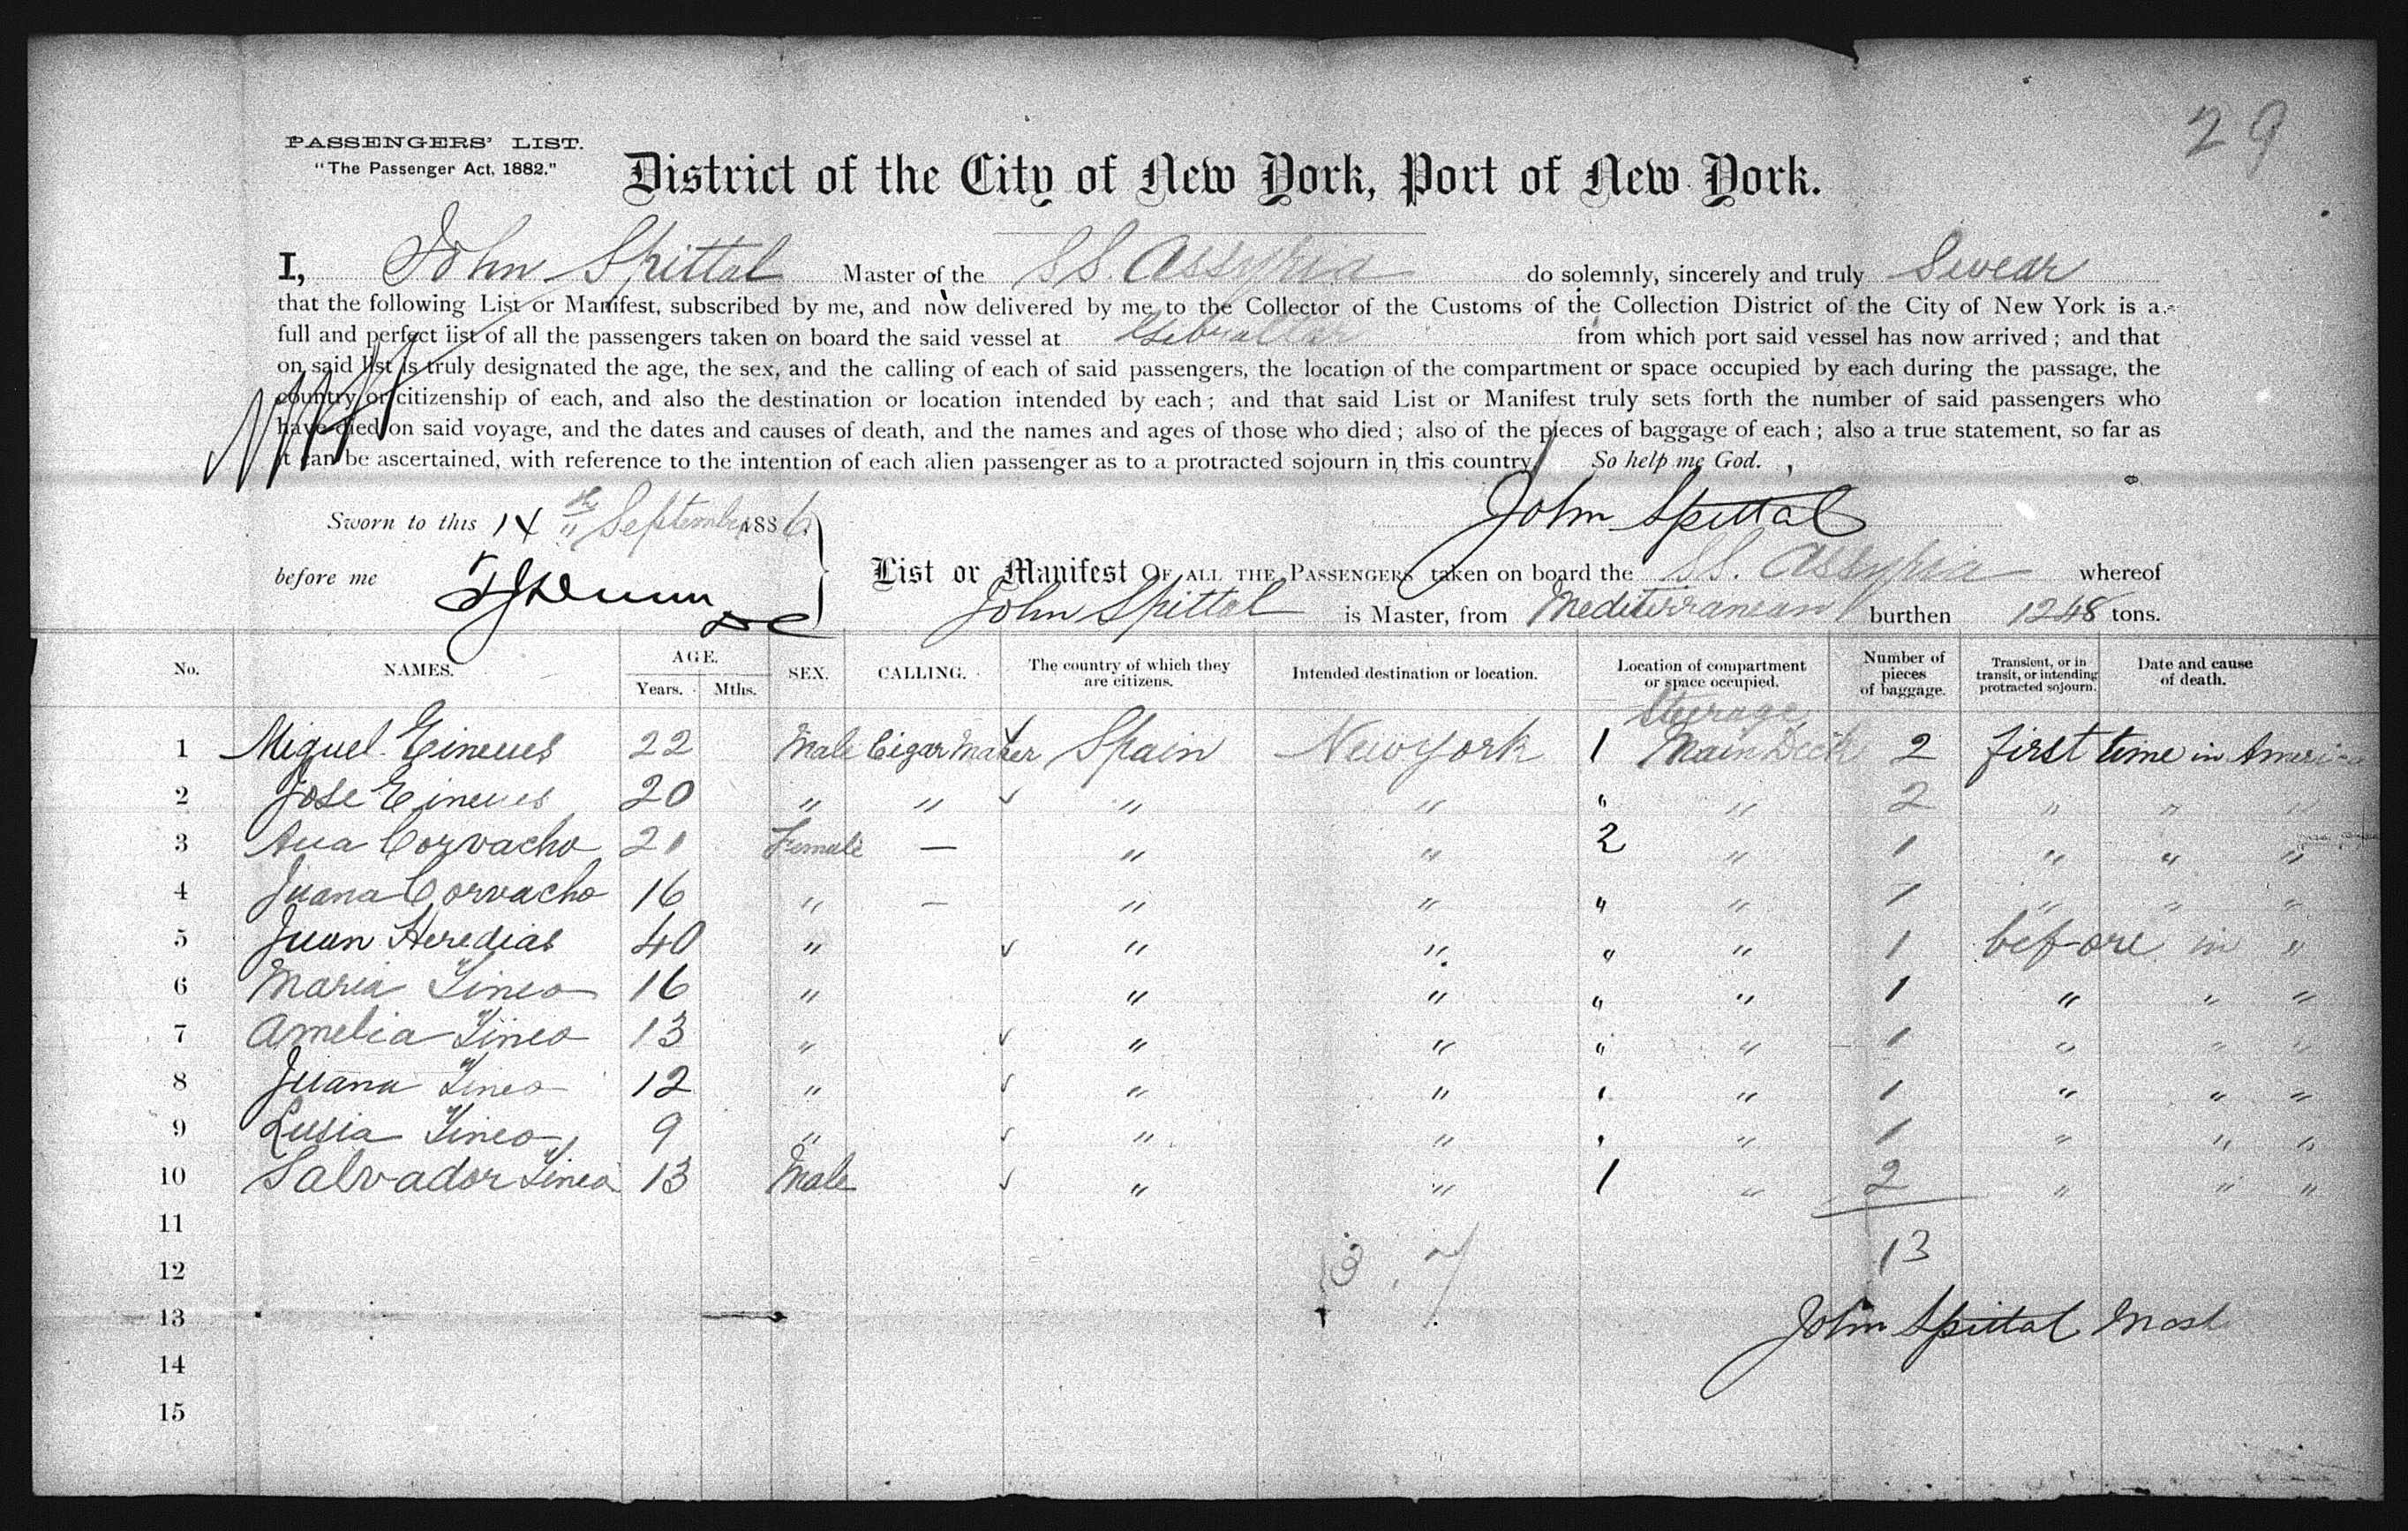 29
PASSENGERS' LIST.
"The Passenger Act, 1882."
District of the City of New York, Port of New York.
I, John Spittal Master of the SS. Assyria do solemnly, sincerely and truly Swear
that the following List or Manifest, subscribed by me, and now delivered by me to the Collector of the Customs of the Collection District of the City of New York is a
full and perfect list of all the passengers taken on board the said vessel at Gibraltar from which port said vessel has now arrived; and that
on said list is truly designated the age, the sex, and the calling of each of said passengers, the location of the compartment or space occupied by each during the passage, the
country or citizenship of each, and also the destination or location intended by each; and that said List or Manifest truly sets forth the number of said passengers who
have died on said voyage, and the dates and causes of death, and the names and ages of those who died; also of the pieces of baggage of each; also a true statement, so far as
it can be ascertained, with reference to the intention of each alien passenger as to a protracted sojourn in this country. So help me God.
Sworn to this 14 th September 1886. John Spittal
before me
List or Manifest OF ALL THE PASSENGERS taken on board the SS. Assyria whereof
John Spittal is Master, from Mediterranean burthen 1248 tons.
No. NAMES. AGE. Years. Mths. SEX. CALLING. The country of which they are citizens. Intended destination or location. Location of compartment or space occupied. Number of pieces of baggage. Transient, or in transit, or intending protracted sojourn. Date and cause of death.
Steerage
1 Miguel 22 Male Cigar Maker Spain New York 1 Main Deck 2 first time in America
2 Jose 20 " " " " " " 2 " " "
3 Ana Corvacho 21 Female — " " 2 " 1 " " "
4 Juana Corvacho 16 " — " " " " 1 " " "
5 Juan Heredias 40 " " " " " 1 before in "
6 Maria Tineo 16 " " " " " 1 " " "
7 Amelia Tineo 13 " " " " " 1 " " "
8 Juana Tineo 12 " " " " " 1 " " "
9 Lusia Tineo 9 " " " " " 1 " " "
10 Salvador Tineo 13 Male " " 1 " 2 " " "
11
12 13
13 John Spittal Mast
14
15